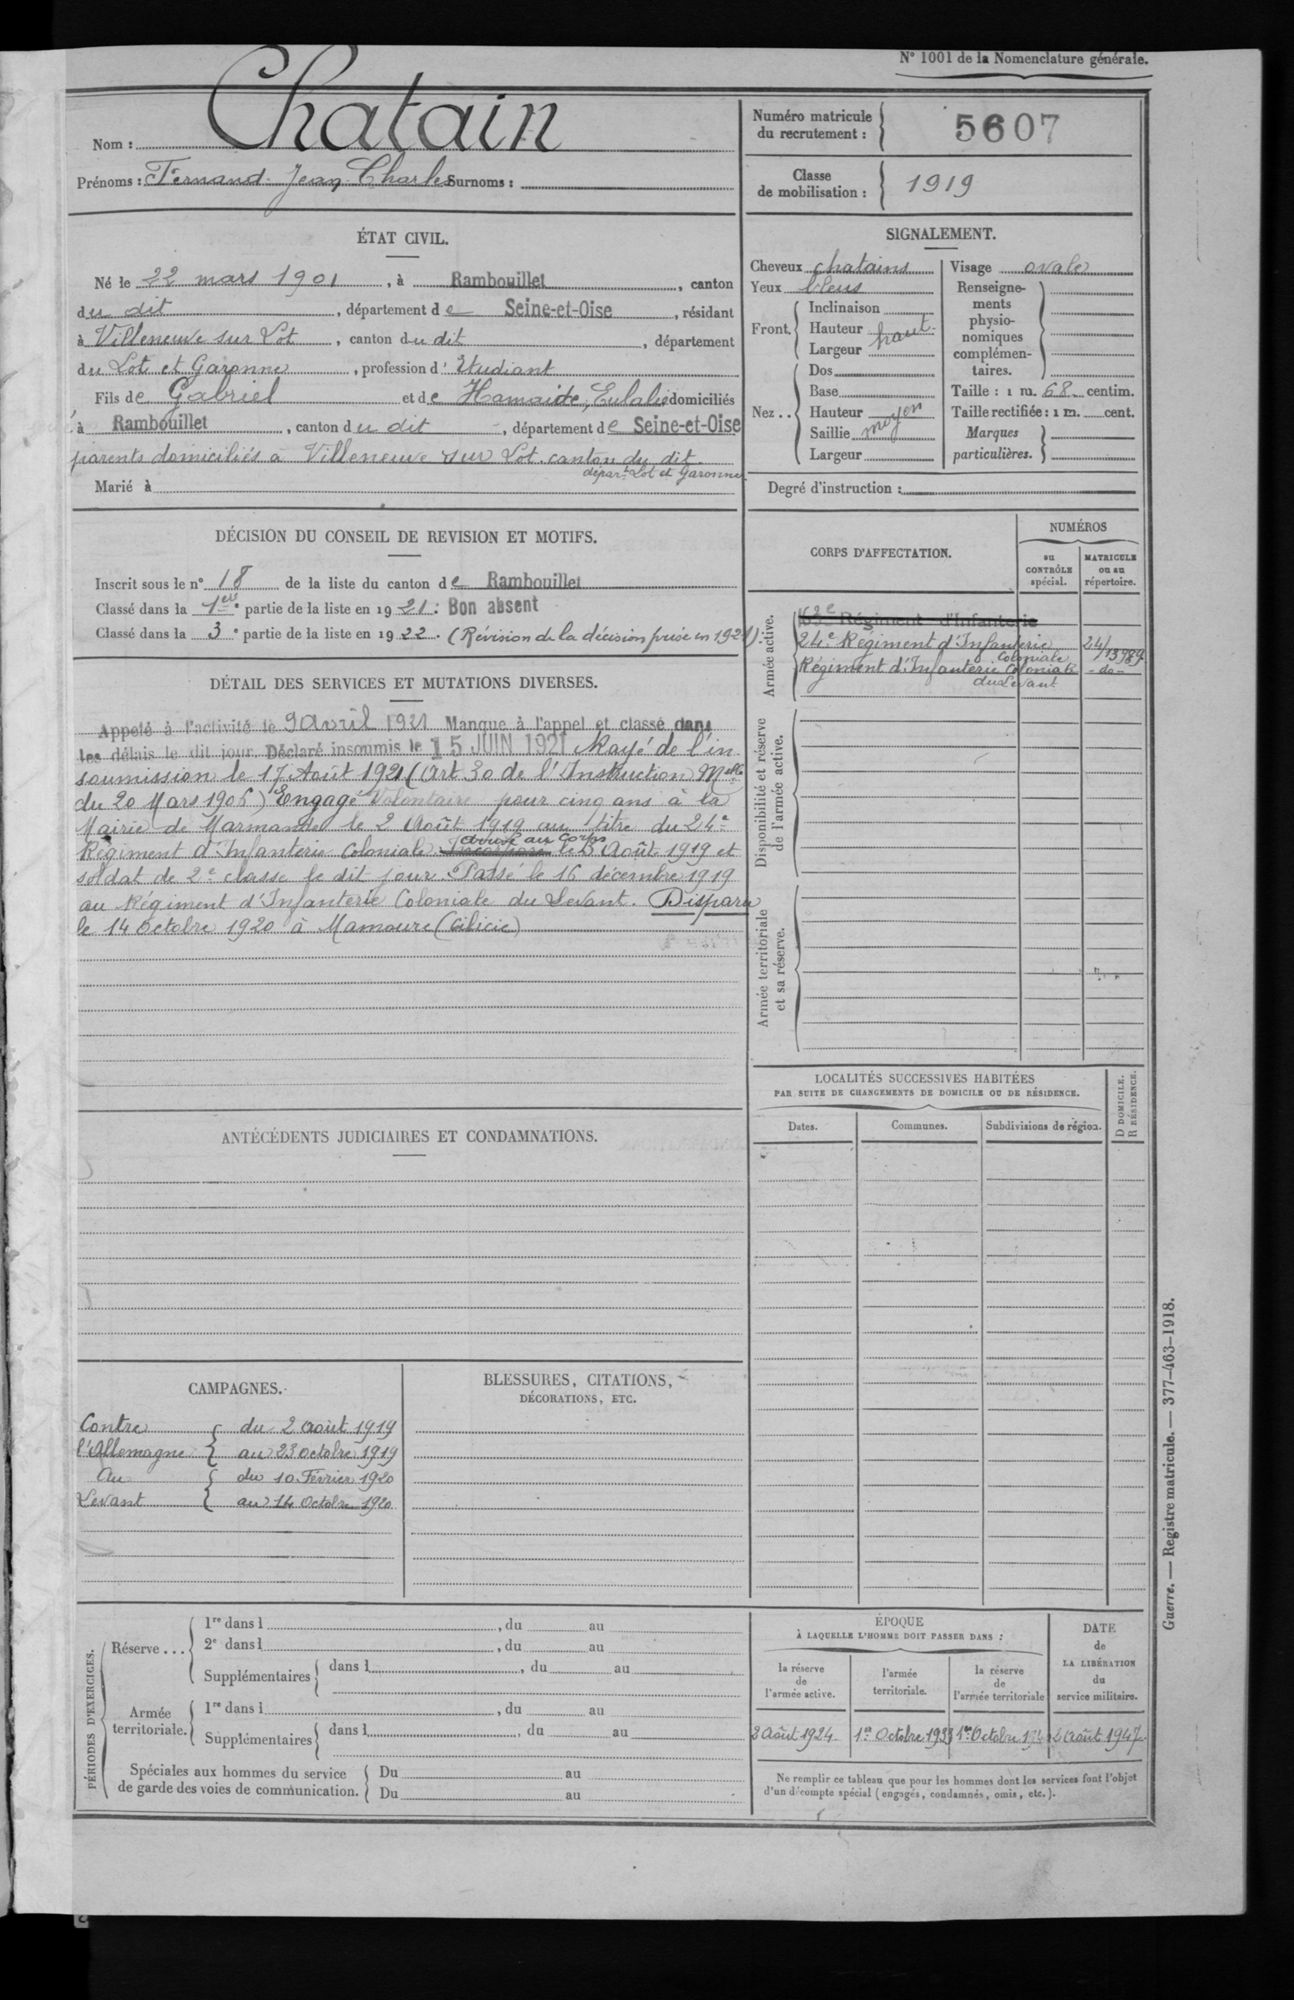 N° 1001 de la Nomenclature générale.
Nom : Chatain
Prénoms : Fernand Jean Charles Surnoms :
Numéro matricule
du recrutement : 5607
Classe
de mobilisation : 1919
ÉTAT CIVIL.
Né le 22 mars 1901, à Rambouillet, canton
du dit, département de Seine-et-Oise, résidant
à Villeneuve sur Lot, canton du dit, département
du Lot et Garonne, profession d'Etudiant
Fils de Gabriel et de Hamaide, Eulalie domiciliés
à Rambouillet, canton du dit, département de Seine-et-Oise
parents domiciliés à Villeneuve sur Lot. canton du dit.
départ. Lot et Garonne
Marié à
SIGNALEMENT.
Cheveux chatains
Yeux bleus
Front. Inclinaison
Hauteur haut
Largeur
Nez .. Dos
Base
Hauteur moyen
Saillie
Largeur
Visage ovale
Renseigne-
ments
physio-
nomiques
complémen-
taires.
Taille : 1 m. 68 centim.
Taille rectifiée : 1 m. cent.
Marques
particulières.
Degré d'instruction :
DÉCISION DU CONSEIL DE REVISION ET MOTIFS.
Inscrit sous le n° 18 de la liste du canton de Rambouillet
Classé dans la 1ere partie de la liste en 1921 : Bon absent
Classé dans la 3e partie de la liste en 1922. (Révision de la décision prise en 1921)
DÉTAIL DES SERVICES ET MUTATIONS DIVERSES.
Appelé à l'activité le 9 avril 1921 Manque à l'appel et classé dans
les délais le dit jour. Déclaré insoumis le 15 JUIN 1921 Rayé de l'in
soumission le 17 Août 1921 (Art 30 de l'Instruction Melle
du 20 Mars 1906) Engagé Volontaire pour cinq ans à la
Mairie de Marmande le 2 Août 1919 au titre du 24e
Régiment d'Infanterie Coloniale. Incorporé arrivé au Corps le 5 Août 1919 et
soldat de 2e classe le dit jour. Passé le 16 décembre 1919
au Régiment d'Infanterie Coloniale du Levant. Disparu
le 14 Octobre 1920 à Mamoure (Cilicie)
CORPS D'AFFECTATION.
NUMÉROS
au
CONTRÔLE
spécial.
MATRICULE
ou au
répertoire.
Armée active.
Régiment d'Infanterie
24e Régiment d'Infanterie Coloniale 24/13989
Régiment d'Infanterie Coloniale du Levant -do-
Disponibilité et réserve
de l'armée active.
Armée territoriale
et sa réserve.
LOCALITÉS SUCCESSIVES HABITÉES
PAR SUITE DE CHANGEMENTS DE DOMICILE OU DE RÉSIDENCE.
Dates.
Communes.
Subdivisions de région.
D DOMICILE.
R RÉSIDENCE.
ANTÉCÉDENTS JUDICIAIRES ET CONDAMNATIONS.
CAMPAGNES.
Contre du 2 Août 1919
l'Allemagne au 23 Octobre 1919
Au du 10 Février 1920
Levant au 14 Octobre 1920
BLESSURES, CITATIONS,
DÉCORATIONS, ETC.
PÉRIODES D'EXERCICES.
Réserve ... 1re dans l , du au
2e dans l , du au
Supplémentaires dans l , du au
Armée
territoriale. 1re dans l , du au
Supplémentaires dans l , du au
Spéciales aux hommes du service
de garde des voies de communication.
Du au
Du au
ÉPOQUE
À LAQUELLE L'HOMME DOIT PASSER DANS :
la réserve
de
l'armée active.
l'armée
territoriale.
la réserve
de
l'armée territoriale
DATE
de
LA LIBÉRATION
du
service militaire.
2 Août 1924
1er Octobre
1er Octobre
2 Août 1947
Ne remplir ce tableau que pour les hommes dont les services font l'objet
d'un décompte spécial (engagés, condamnés, omis, etc.).
Guerre. — Registre matricule. — 377-463-1918.